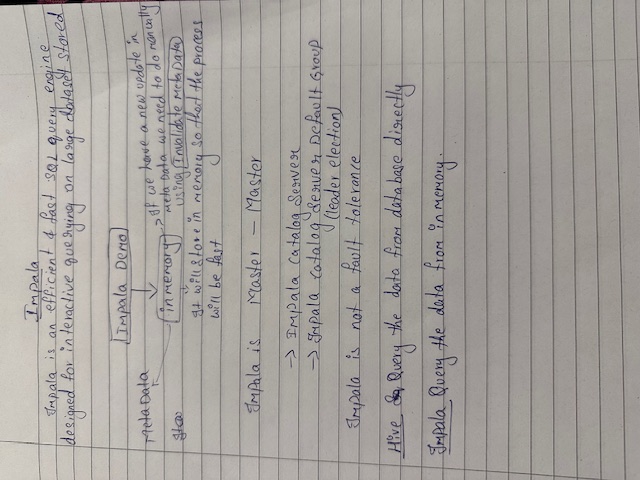 Impala
Impala is an efficient & fast SQL query engine
designed for interactive querying on large dataset stored
Impala Demo
MetaData
in memory
If we have a new update in
meta data we need to do manually
using Invalidate MetaData
It will store in memory so that the process
will be fast
Impala is Master - Master
→ Impala Catalog Server
→ Impala Catalog Server Default Group
(leader election)
Impala is not a fault tolerance
Hive Query the data from database directly
Impala Query the data from in memory.